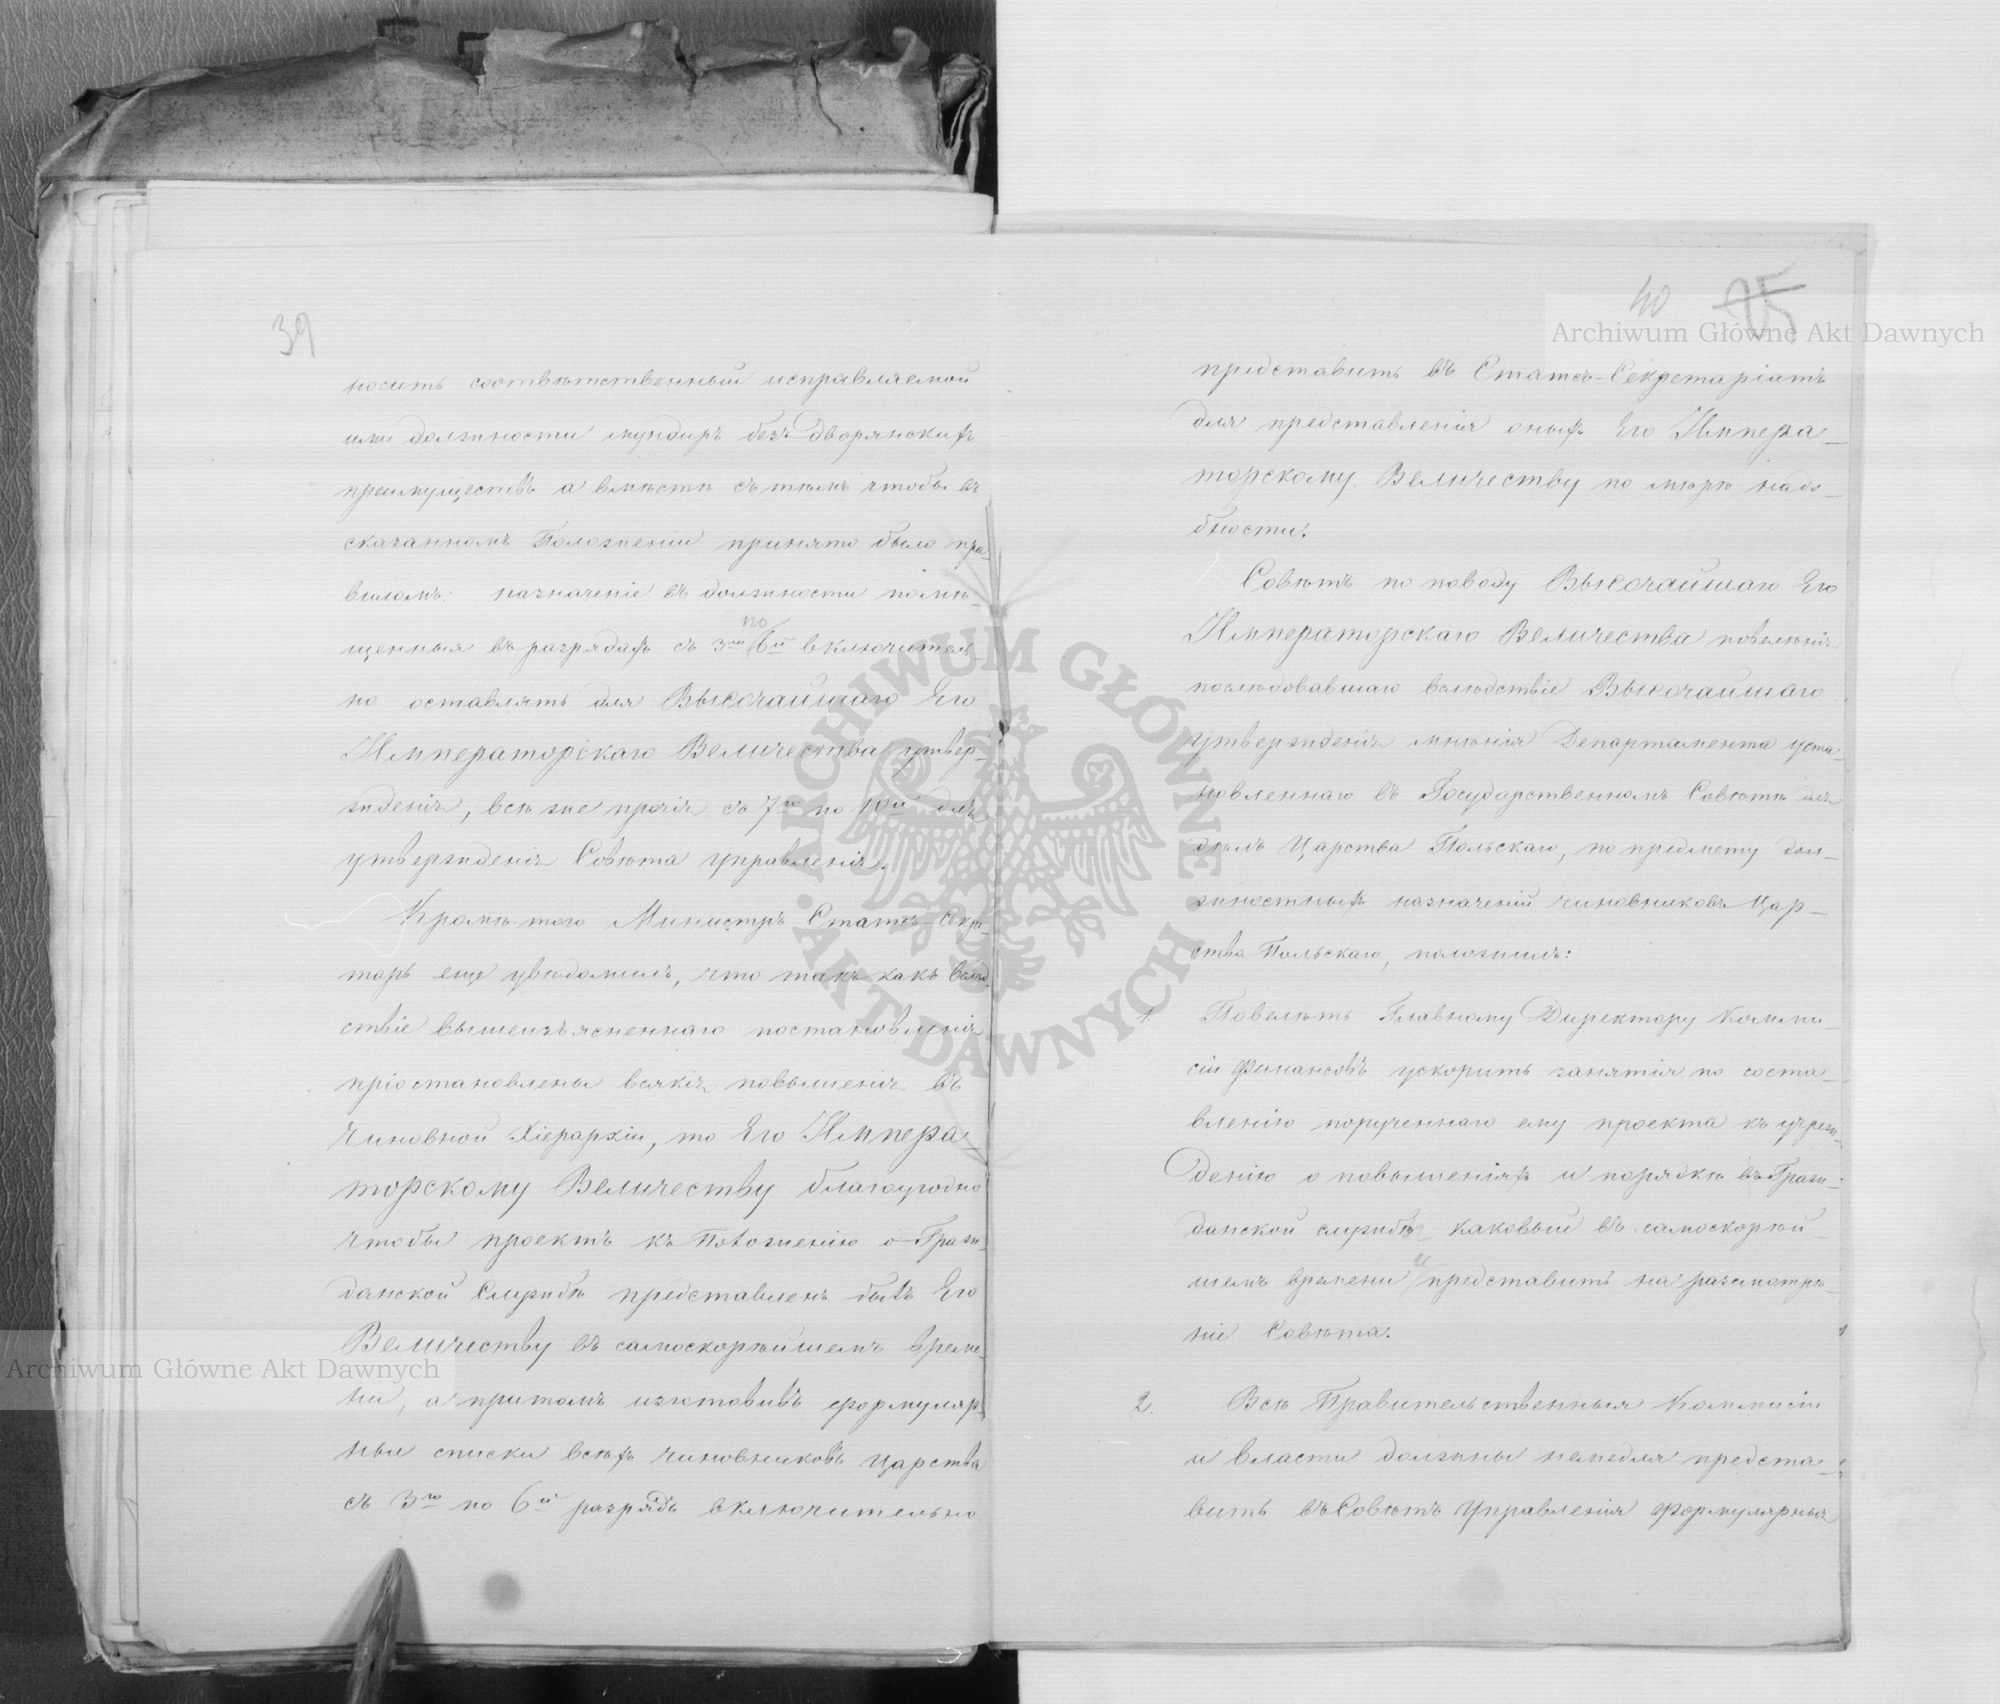 39
носить соотвѣтственный исправляемой
ими должности мундиръ безъ дворянскихъ
преимуществъ а вмѣстѣ съ тѣмъ чтобы въ
сказанномъ Положеніи принято было пра-
виломъ: назначеніе въ должности помѣ-
щенныя въ разрядахъ съ 3го по 6й включитель
но оставлять для Высочайшаго Его
Императорскаго Величества утвер-
жденія, всѣ же прочія съ 7го по 10й для
утвержденія Совѣта управленія.
Кромѣ того Министръ Статсъ-Секре-
тарь еще увѣдомилъ, что такъ какъ вслѣд
ствіе вышеизъясненнаго постановленія
пріостановлены всякія повышенія въ
чиновной Хіерархіи, то Его Импера-
торскому Величеству благоугодно
чтобы проектъ къ Положенію о Граж-
данской Службѣ представленъ былъ Его
Величеству въ самоскорѣйшемъ време-
ни, а притомъ изготовивъ формуляр-
ныи списки всѣхъ чиновниковъ Царства
съ 3го по 6й разрядъ включительно
40 25
представить въ Статсъ-Секретаріатъ
для представленія оныхъ Его Импера-
торскому Величеству по мѣрѣ надо-
бности.
Совѣтъ по поводу Высочайшаго Его
Императорскаго Величества повелѣнія
послѣдовавшаго вслѣдствіе Высочайшаго
утвержденія мнѣнія Департамента уста-
новленнаго въ Государственномъ Совѣтѣ для
дѣлъ Царства Польскаго, по предмету дол-
жностныхъ назначеній чиновниковъ Цар-
ства Польскаго, положилъ:
1. Повелѣть Главному Директору Комми-
сіи Финансовъ ускорить занятія по соста-
вленію порученнаго ему проекта къ учреж-
денію о повышеніяхъ и порядкѣ въ Граж-
данской службѣ каковый въ самоскорѣй-
шемъ времени и представить на разсмотрѣ-
ніе Совѣта.
2. Всѣ Правительственныя Коммисіи
и власти должны немедля предста-
вить въ Совѣтъ Управленія формулярныя
Archiwum Główne Akt Dawnych
Archiwum Główne Akt Dawnych
ARCHIWUM GŁÓWNE AKT DAWNYCH